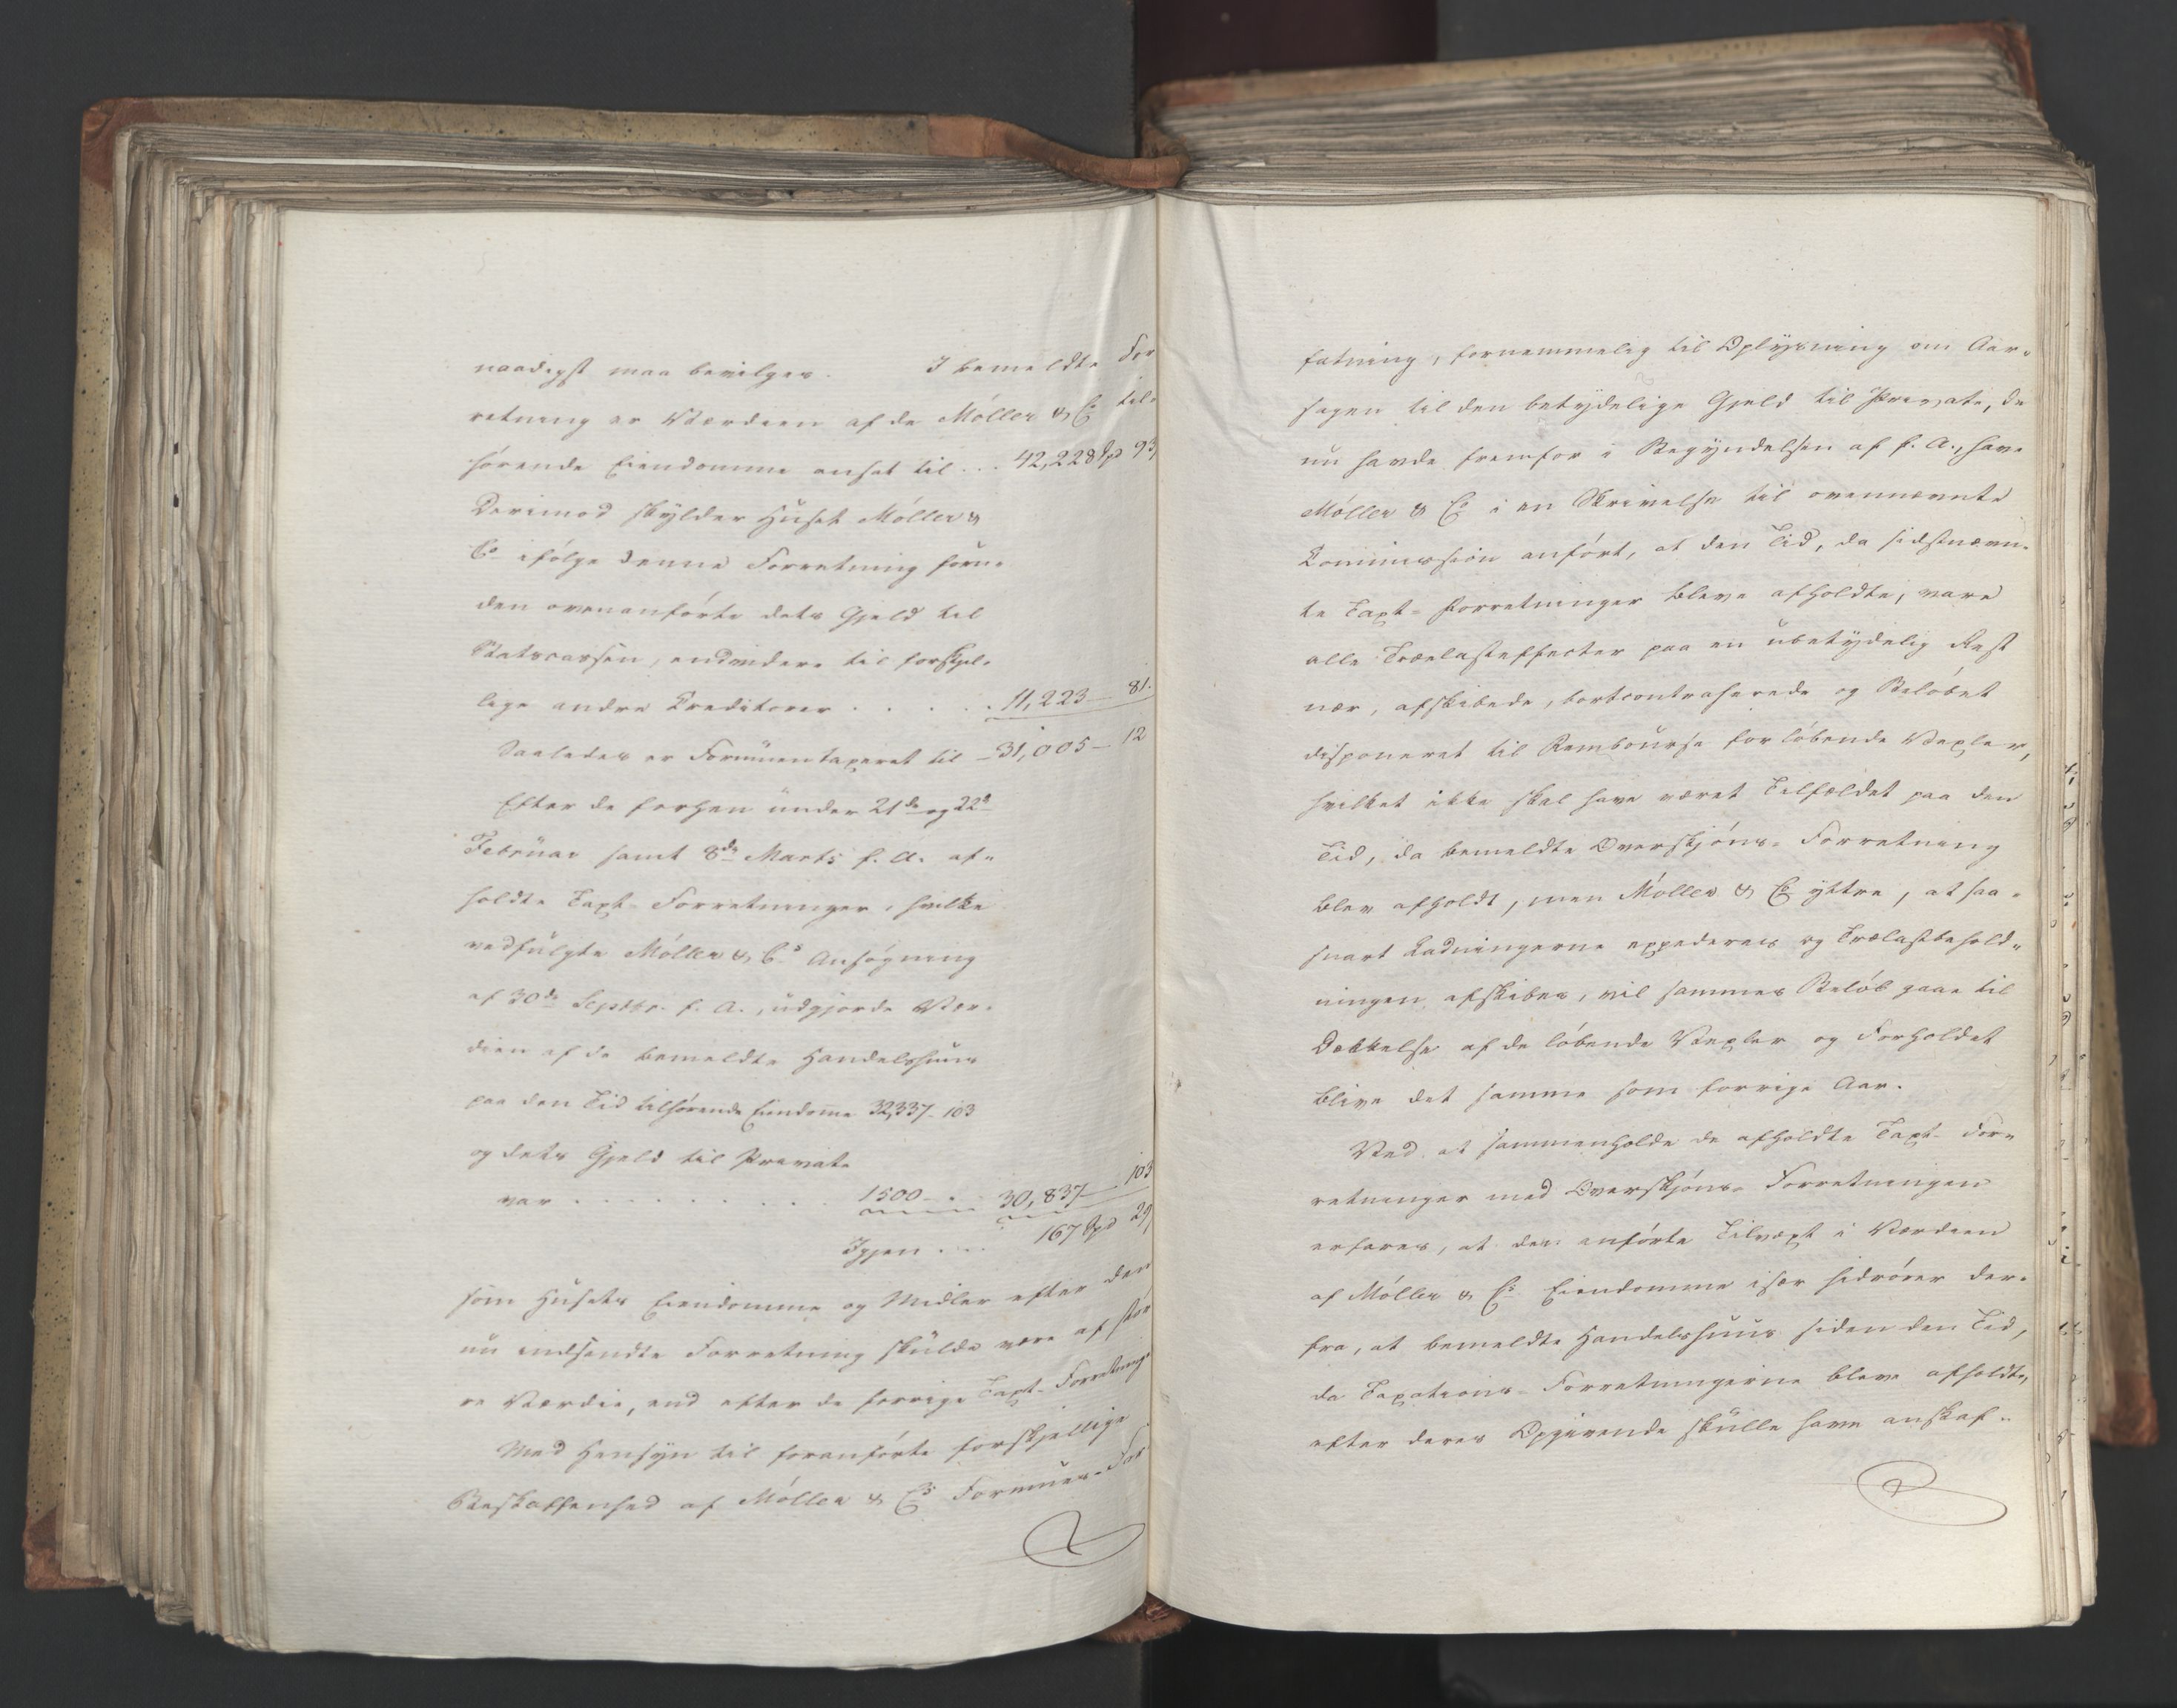 naadigst maa bevilges. I bemeldte For
retning er Værdien af de Møller & Co til-
hørende Eiendomme anset til ... 42,228 Spd 93,
Derimod skylder Huset Møller &
Co ifølge denne Forretning foru-
den ovenanførte dets Gjeld til
Statscassen, endvidere til forskjel-
lige andre Creditorer . . . . . 11,223 — 81.
Saaledes er Formuen taxeret til — 31,005 — 12
Efter de forhen under 21de og 22de
Februar samt 8de Marts f. A. af-
holdte Taxt-Forretninger, hvilke
vedfulgte Møller & Co Ansøgning
af 30de Septbr. f. A., udgjorde Vær-
dien af de bemeldte Handelshuus
paa den Tid tilhørende Eiendome 32,337 - 103
og dets Gjeld til Private
var . . . . . . . . 1500 — . 30,837 — 103
Igjen . . . . 167 Spd 29,
som Husets Eiendomme og Midler efter den
nu indsendte Forretning skulde være af stør
re Værdie, end efter de forrige Taxt-Forretninge
Med Hensyn til foranførte forskjellige
Beskaffenhed af Møller & Co Formues-For
fatning, fornemmelig til Oplysning om Aar-
sagen til den betydelige Gjeld til Private, de
nu havde fremfor i Begyndelsen af f. A., have
Møller & Co i en Skrivelse til ovennævnte
Commission anført, at den Tid, da sidstnævn-
te Taxt-Forretninger bleve afholdte, vare
alle Trælasteffecter paa en ubetydelig Rest
nær, afskibede, bortcontraherede og Beløbet
disponeret til Rembourse for løbende Vexler,
hvilket ikke skal have været Tilfældet paa den
Tid, da bemeldte Overskjøns-Forretning
blev afholdt, men Møller & Co yttre, at saa-
snart Ladningerne expederes og Trælastbehold-
ningen afskibes, vil sammes Beløb gaae til
Dækkelse af de løbende Vexler og Forholdet
blive det samme som forrige Aar.
Ved at sammenholde de afholdte Taxt-For-
retninger med Overskjøns-Forretningen
erfares, at den anførte Tilvæxt i Værdien
af Møller & Co Eiendomme især hidrører der-
fra, at bemeldte Handelshuus siden den Tid,
da Taxations-Forretningerne bleve afholdte,
efter deres Opgivende skulle have anskaf-